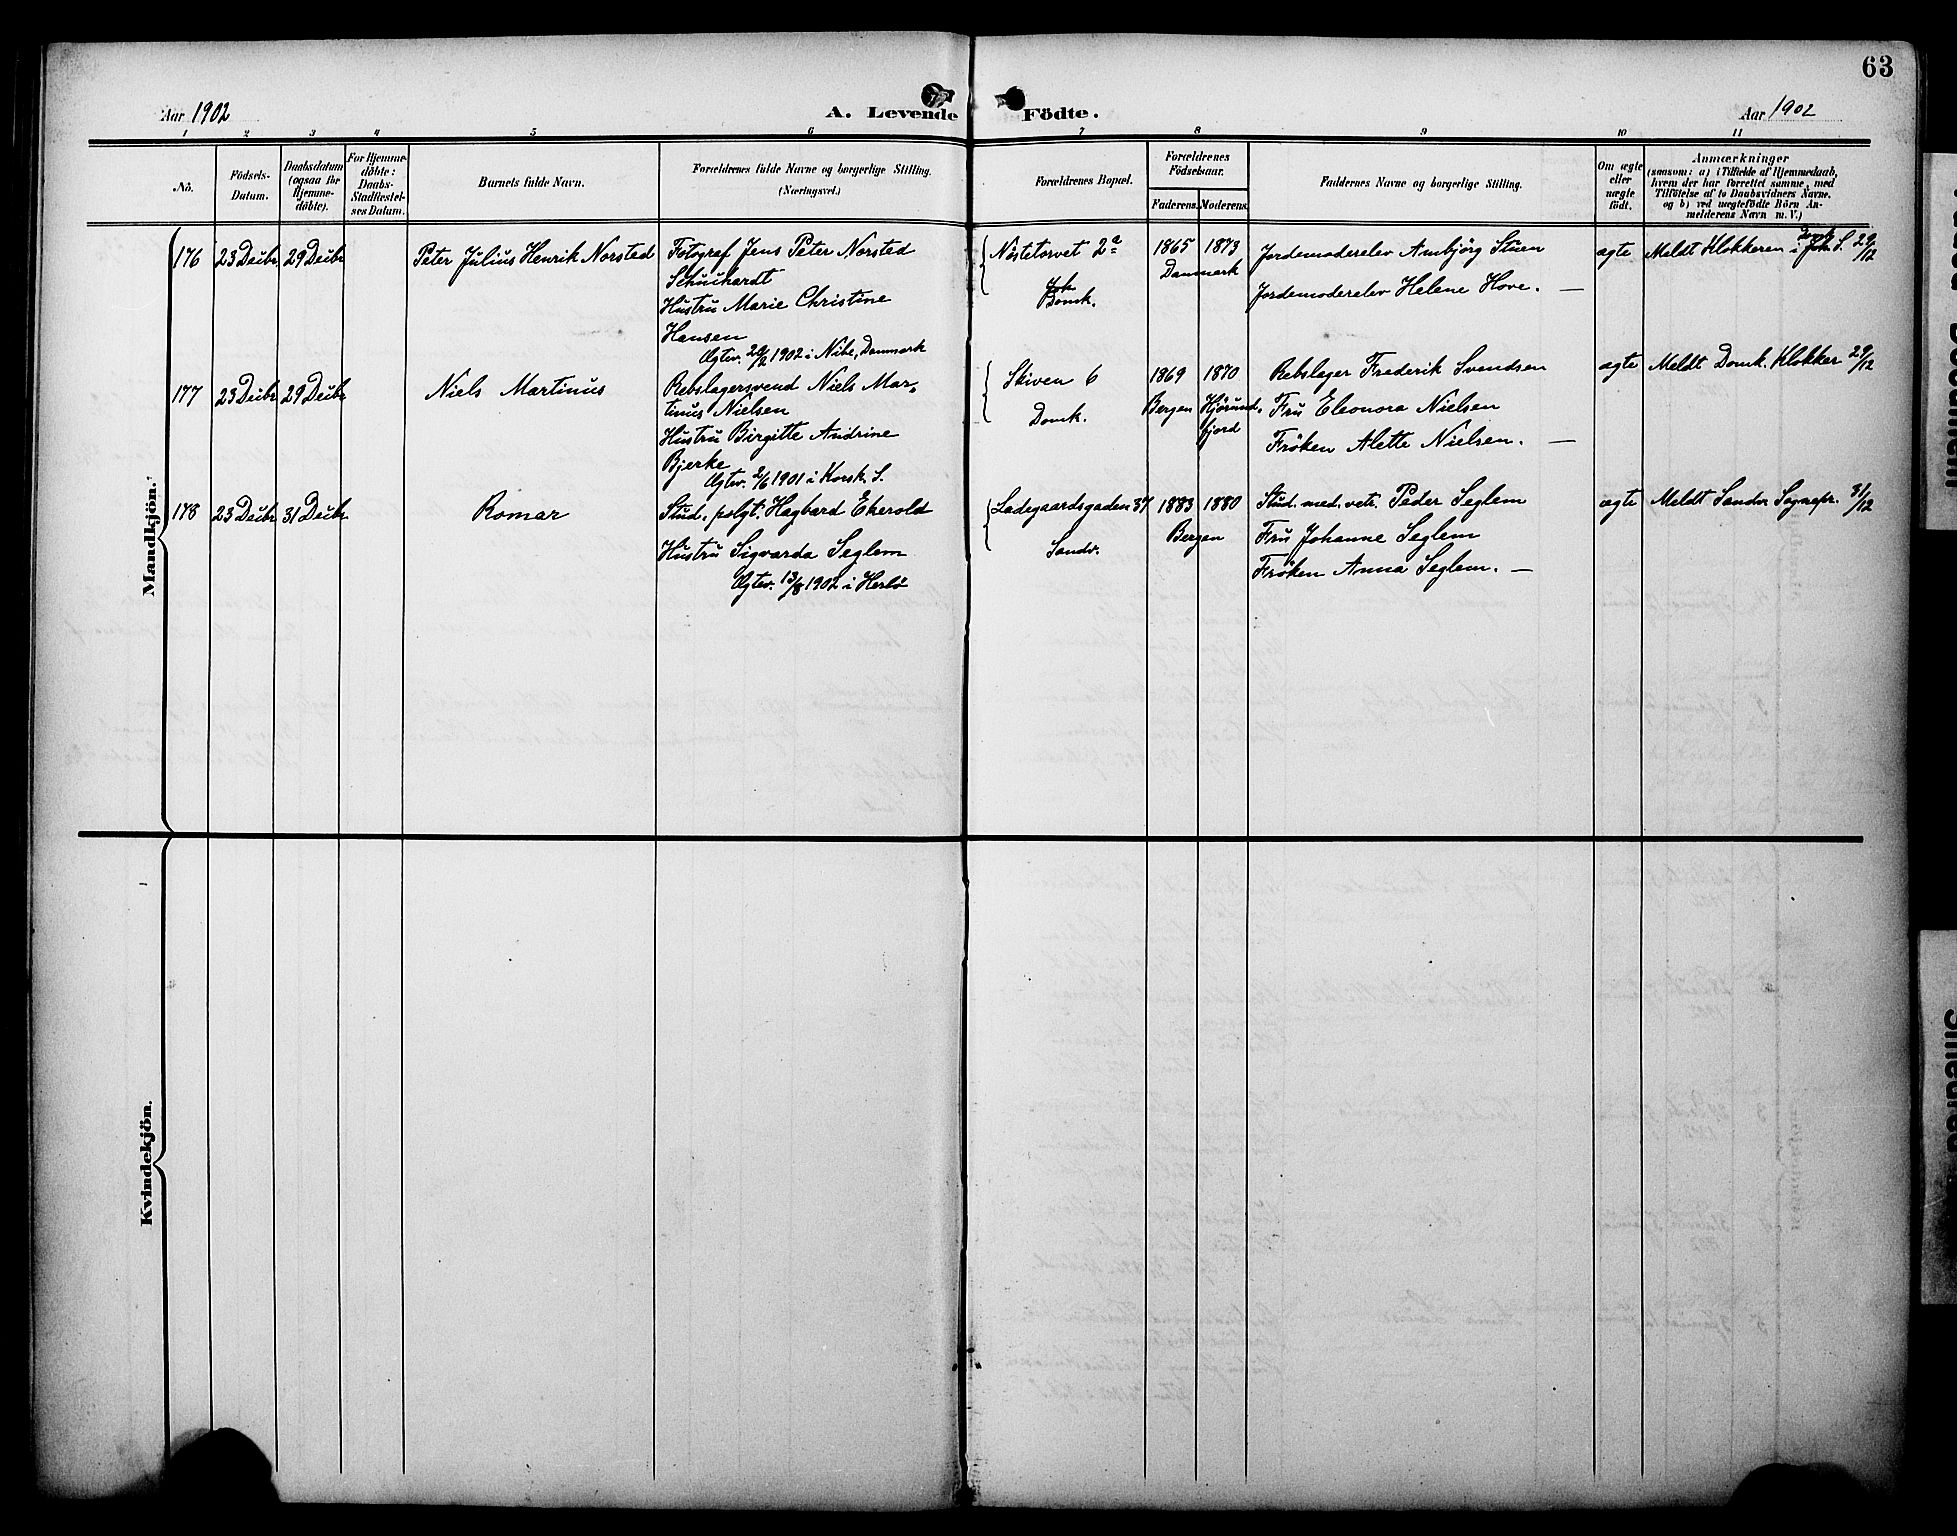 63
Aar 1902
A. Levende Födte.
Aar 1902
1 2 3 4 5 6 7 8 9 10 11
No.
Födsels-
Datum.
Daabsdatum
(ogsaa for
Hjemme-
döbte).
For Hjemme-
döbte:
Daabs-
Stadfæstel-
ses Datum.
Barnets fulde Navn.
Forældrenes fulde Navne og borgerlige Stilling.
(Næringsvei.)
Forældrenes Bopæl.
Forældrenes
Födselsaar.
Faderens. Moderens.
Faddernes Navne og borgerlige Stilling.
Om ægte
eller
uægte
födt.
Anmærkninger
(saasom: a) i Tilfælde af Hjemmedaab,
hvem der har forrettet samme, med
Tilföielse af to Daabsvidners Navne,
og b) ved uægtefödte Börn An-
melderens Navn m. V.)
Mandkjön.
176 23 Decbr. 29 Decbr.
Peter Julius Henrik Norsted
Fotograf Jens Peter Norsted
Schuchardt
Hustru Marie Christine
Hansen
Ægtev. 20/2 1902 i Nibe, Danmark
Nöstetorvet 2a
Joh
Domk.
1865 1873
Danmark
Jordemoderelev Ambjörg Stuen
Jordemoderelev Helene Hove. —
ægte
Meldt Klokkeren i Joh. S. 29/12
Domk
177 23 Decbr. 29 Decbr.
Niels Martinus
Rebslagersvend Niels Mar-
tinus Nielsen
Hustru Birgitte Andrine
Bjerke
Ægtev. 2/6 1901 i Korsk. S.
Skiven 6
Domk.
1869 1870
Bergen Hjörund-
fjord
Rebslager Frederik Svendsen
Fru Eleonora Nielsen
Fröken Alette Nielsen. —
ægte
Meldt Domk. Klokker 29/12
178 23 Decbr. 31 Decbr.
Romar
Stud. polyt. Hagbard Ekerold
Hustru Sigvarda Seglem
Ægtev. 13/8 1902 i Herlö
Ladegaardsgaden 37
Sandv.
1883 1880
Bergen
Stud. med. vetr. Peder Seglem
Fru Johanne Seglem
Fröken Anna Seglem. —
ægte
Meldt Sandv. Sognepr. 31/12
Kvindekjön.